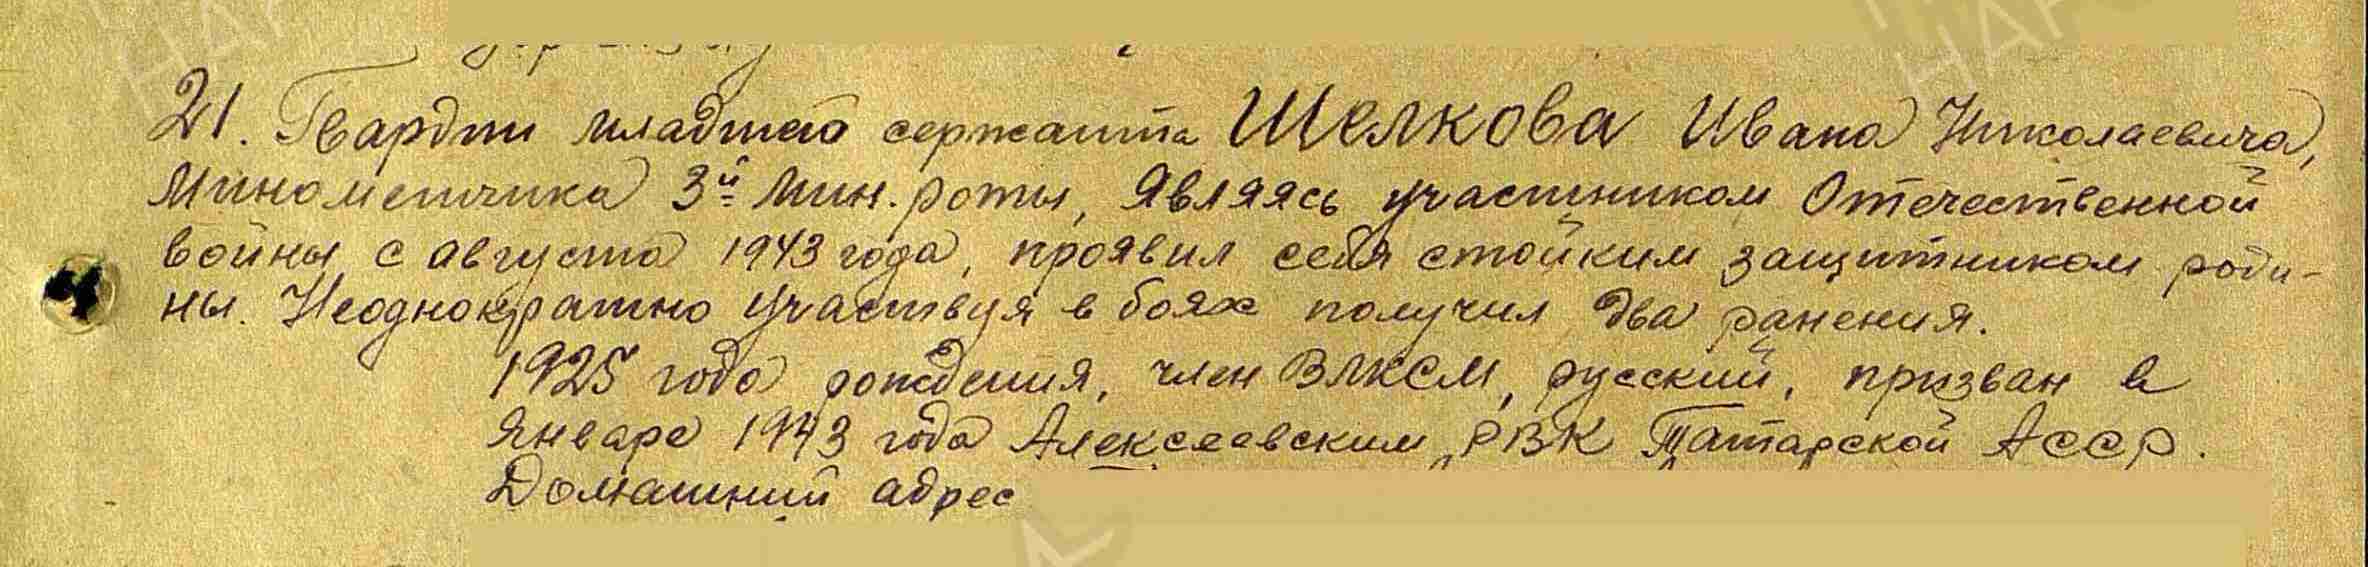 21. Гвардии младшего сержанта Шелкова Ивана Николаевича,
Минометчика 3й мин. роты, являясь участником Отечественной
войны с августа 1943 года, проявил себя стойким защитником роди-
ны. Неоднократно участвуя в боях получил два ранения.
1925 года рождения, член ВЛКСМ, русский, призван в
январе 1943 года Алексеевским РВК Татарской АССР.
Домашний адрес